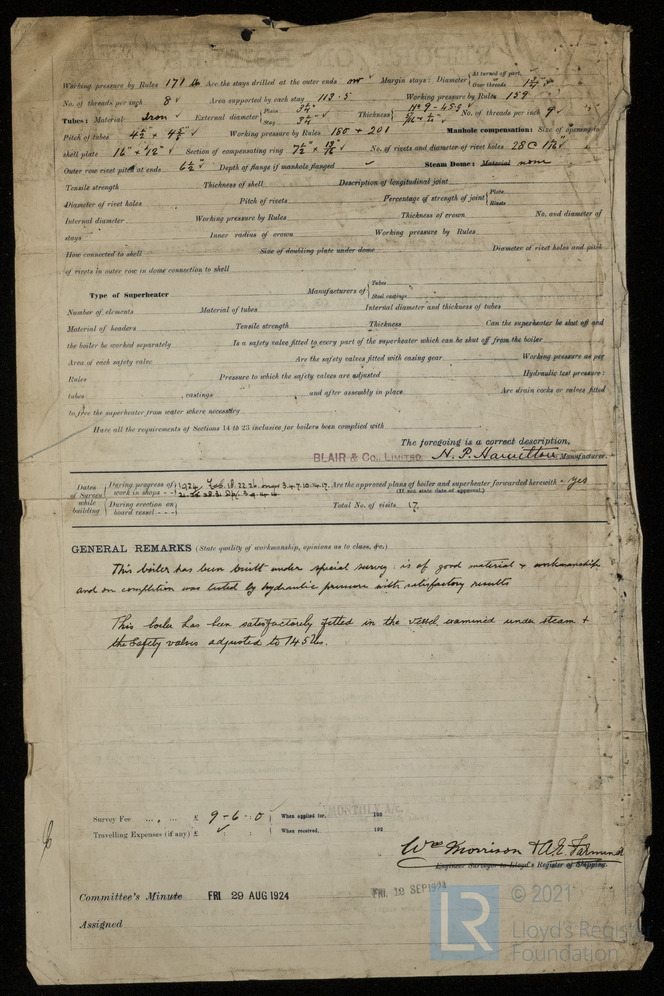 Working pressure by Rules 171 lb Are the stays drilled at the outer ends no Margin stays: Diameter { At turned off part, or Over threads 1 3/4"
No. of threads per inch 8 Area supported by each stay 113.5 Working pressure by Rules 159
Tubes: Material Iron External diameter { Plain 3 1/4" Stay 3 1/4" Thickness { No. of threads per inch 9
Pitch of tubes 4 1/2 + 4 3/8" Working pressure by Rules 180 + 201 Manhole compensation: Size of opening in
shell plate 16" + 12" Section of compensating ring No. of rivets and diameter of rivet holes
Outer row rivet pitch at ends 6 1/2" Depth of flange if manhole flanged Steam Dome: Material none
Tensile strength Thickness of shell Description of longitudinal joint
Diameter of rivet holes Pitch of rivets Percentage of strength of joint { Plate Rivets
Internal diameter Working pressure by Rules Thickness of crown No. and diameter of
stays Inner radius of crown Working pressure by Rules
How connected to shell Size of doubling plate under dome Diameter of rivet holes and pitch
of rivets in outer row in dome connection to shell
Type of Superheater Manufacturers of { Tubes Steel castings
Number of elements Material of tubes Internal diameter and thickness of tubes
Material of headers Tensile strength Thickness Can the superheater be shut off and
the boiler be worked separately Is a safety valve fitted to every part of the superheater which can be shut off from the boiler
Area of each safety valve Are the safety valves fitted with easing gear Working pressure as per
Rules Pressure to which the safety valves are adjusted Hydraulic test pressure:
tubes , castings and after assembly in place Are drain cocks or valves fitted
to free the superheater from water where necessary
Have all the requirements of Sections 14 to 23 inclusive for boilers been complied with
The foregoing is a correct description,
BLAIR & Co., LIMITED. H. P. Hamilton Manufacturer.
Dates of Survey while building { During progress of work in shops - - } 1924 Feb 18.22.26 Mar 3.4.7.10.14.17. Are the approved plans of boiler and superheater forwarded herewith yes
(If not state date of approval.)
During erection on board vessel - - - } Total No. of visits 17.
GENERAL REMARKS (State quality of workmanship, opinions as to class, &c.)
This boiler has been built under special survey, is of good material & workmanship
and on completion was tested by hydraulic pressure with satisfactory results
This boiler has been satisfactorily fitted in the vessel, examined under steam &
the safety valves adjusted to 145 lbs.
Survey Fee ... £ 9 - 6 : 0 When applied for, 192
Travelling Expenses (if any) £ : : When received, 192
MONTHLY A/C.
Wm Morrison & A.E. Farmund
Engineer Surveyor to Lloyd's Register of Shipping.
Committee's Minute FRI 29 AUG 1924 FRI. 12 SEP 1924
Assigned
LR © 2021
Lloyd's Register
Foundation